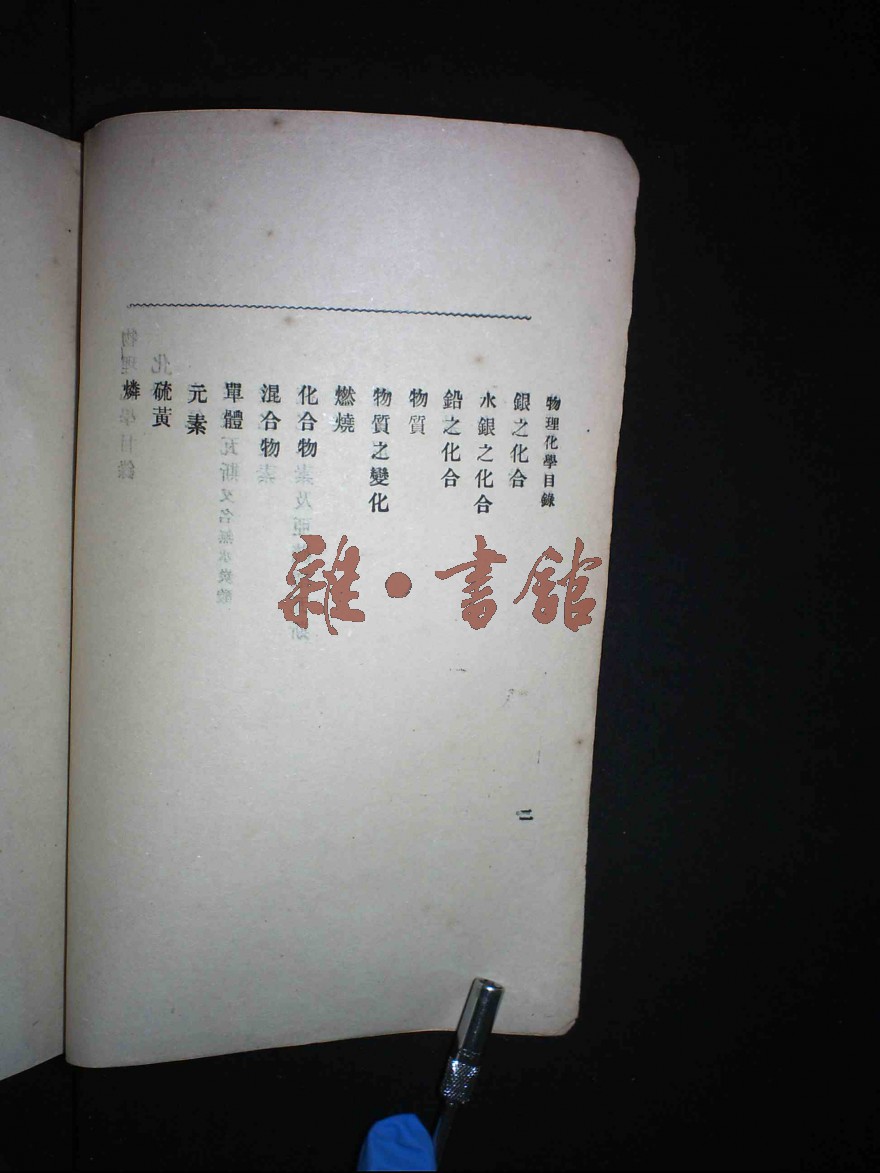 物理化學目錄
銀之化合
水銀之化合
鉛之化合
物質
物質之變化
燃燒
化合物
混合物
單體
元素
硫黃
燐
二
雜·書館